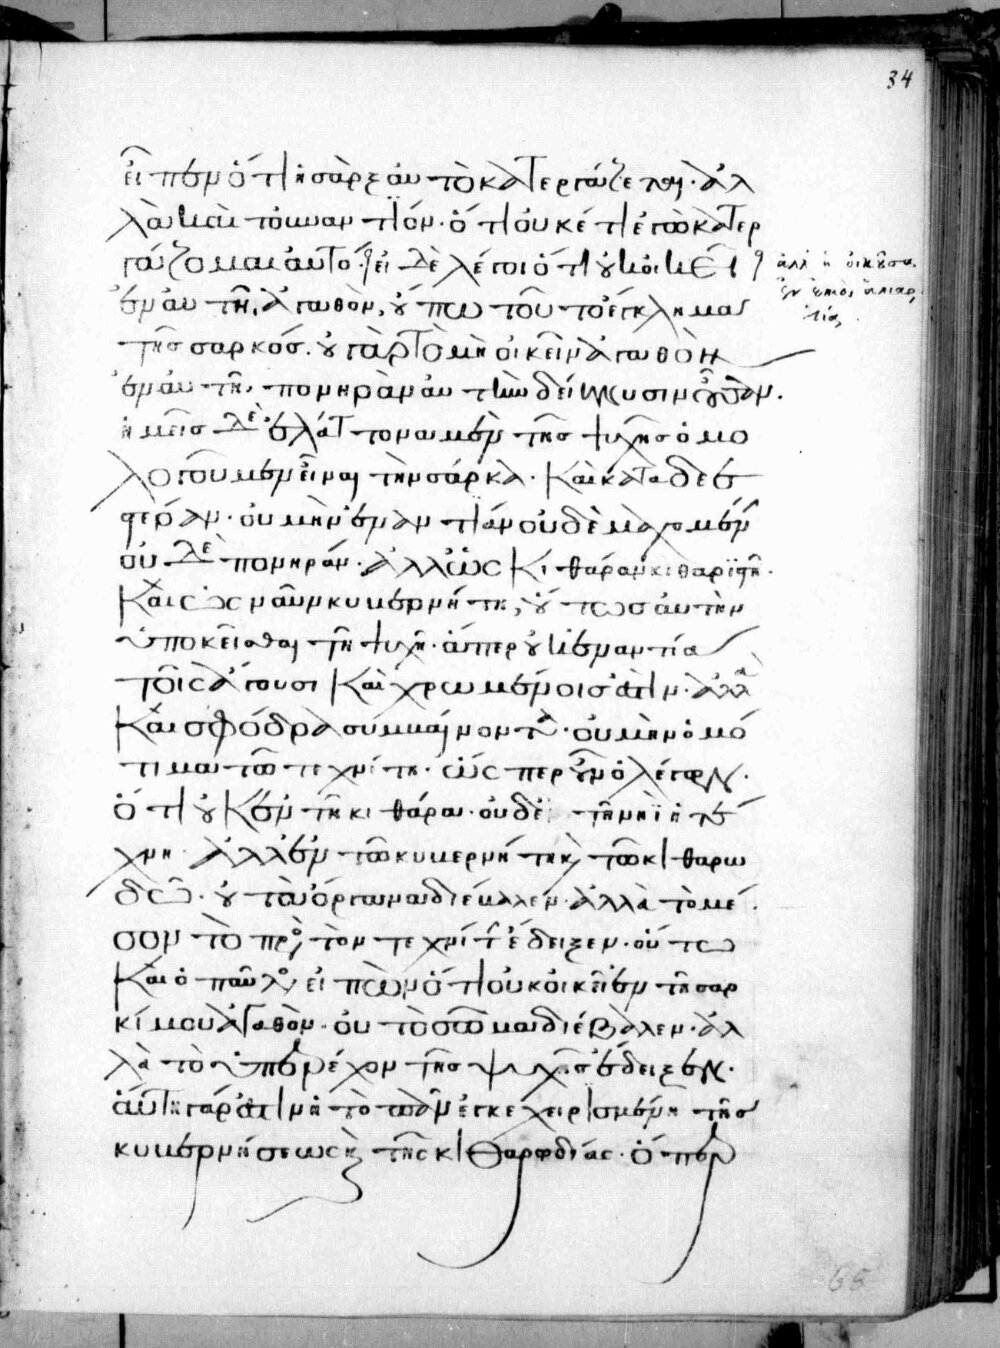 34
εἶπεν ὅτι ἡ σὰρξ αὐτὸ κατεργάζεται· ἀλ
λὰ καὶ τοὐναντίον· ὅτι οὐκέτι ἐγὼ κατερ
γάζομαι αὐτό· εἰ δὲ λέγοι ὅτι οὐκ οἰκεῖ
ἐν αὐτῇ ἀγαθὸν, οὔπω τοῦτο ἔγκλημα
τῆς σαρκός. οὐ γὰρ τὸ μὴ οἰκεῖν ἀγαθὸν
ἐν αὐτῇ, πονηρὰν αὐτὴν δείκνυσιν οὖσαν.
ἡμεῖς δὲ ἐλάττονα μὲν τῆς ψυχῆς ὁμο
λογοῦμεν εἶναι τὴν σάρκα· καὶ καταδεε
στέραν· οὐ μὴν ἐναντίαν οὐδὲ μαχομένην
οὐδὲ πονηράν· ἀλλ' ὡς κιθάραν κιθαριστῇ·
καὶ ὡς ναῦν κυβερνήτῃ, οὕτως αὐτὴν
ὑποκεῖσθαι τῇ ψυχῇ· ἅπερ οὐκ ἐναντία
τοῖς ἄγουσι καὶ χρωμένοις ἐστιν· ἀλλὰ
καὶ σφόδρα συμβαίνοντα· οὐ μὴν ὁμό
τιμα τῷ τεχνίτῃ· ὥσπερ οὖν ὁ λέγων·
ὅτι οὐκ ἐν τῇ κιθάρᾳ· οὐδὲ τῇ νηῒ ἡ τέ
χνη· ἀλλ' ἐν τῷ κυβερνήτῃ καὶ τῷ κιθαρω
δῷ· οὐ τὰ ὄργανα διέβαλεν· ἀλλὰ τὸ μέ
σον τὸ πρὸς τὸν τεχνίτην ἔδειξεν· οὕτω
καὶ ὁ παῦλος εἰπὼν ὅτι οὐκ οἰκεῖ ἐν τῇ σαρ
κί μου ἀγαθὸν· οὐ τὸ σῶμα διέβαλεν· ἀλ
λὰ τὸ ὑπερέχον τῆς ψυχῆς ἔδειξεν·
αὕτη γάρ ἐστιν ἡ τὸ πᾶν ἐγκεχειρισμένη τῆς
κυβερνήσεως καὶ τῆς κιθαρῳδίας· ὅπερ
ἀλλ' ἡ οἰκοῦσα
ἐν ἐμοὶ ἁμαρ
τία
65